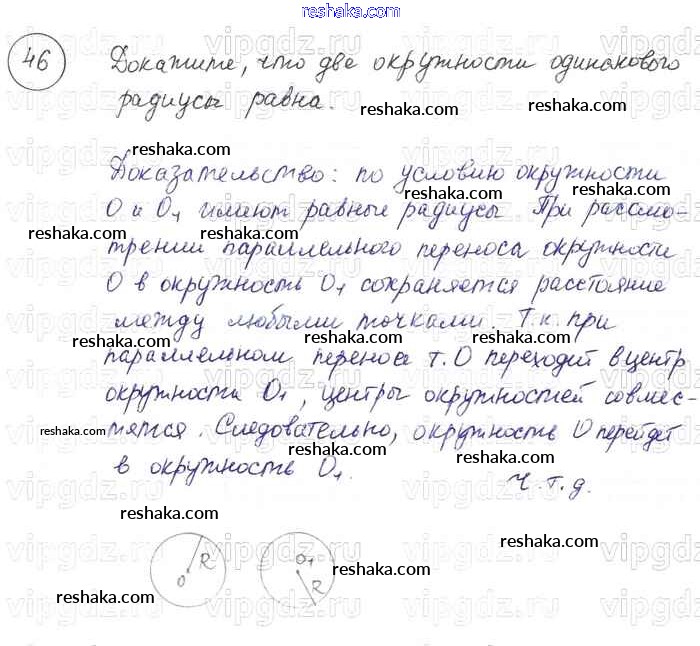 reshaka.com
46 Докажите, что две окружности одинакового
радиуса равна.
reshaka.com reshaka.com
reshaka.com
Доказательство: по условию окружности
О и О₁ имеют равные радиусы. При рассмо-
reshaka.com reshaka.com reshaka.com
трении параллельного переноса окружности
О в окружность О₁ сохраняется расстояние
между любыми точками. Т.к. при
reshaka.com reshaka.com reshaka.com
параллельном переносе т. О переходит в центр
окружности О₁, центры окружностей совмес-
тятся. Следовательно, окружность О перейдет
reshaka.com reshaka.com reshaka.com
в окружность О₁.
reshaka.com reshaka.com
ч.т.д.
reshaka.com reshaka.com
O R O₁ R
reshaka.com reshaka.com reshaka.com